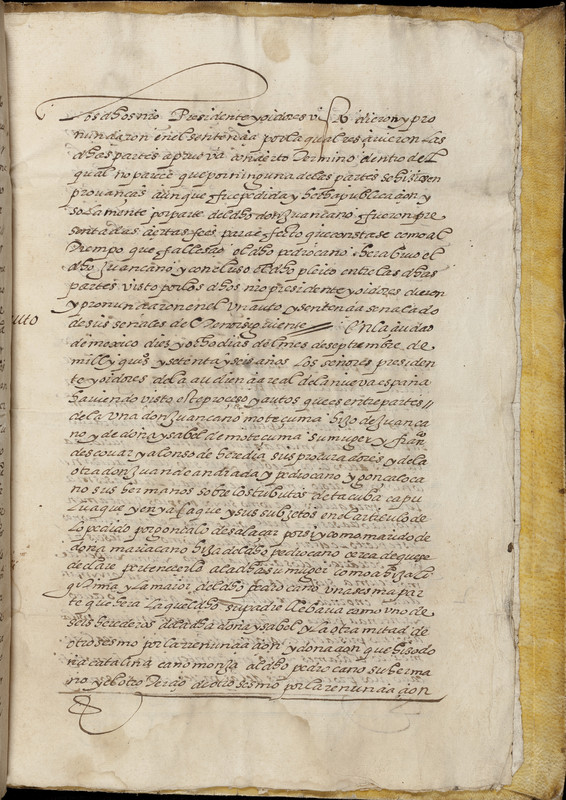 los dhos mio Presidente y oidores dieron y pro
nunciaron en el sentencia por la qual resçiuieron las
dhas partes a prueva con çierto termino dentro del
qual no pareçe que por ninguna de las partes se hisiesen
provanças aunque fue pedida y hecha publicaçion y
solamente por parte del dho don Juan cano fueron pre
sentadas çiertas fees para efecto que constase como al
tiempo que fallesçio el dho pedro cano hera biuo el
dho Juan cano y concluso el dho pleito entre las dhas
partes visto por los dhos mio presidente y oidores dieron
y pronunciaron en el un auto y sentencia señalado
de sus señales del tenor siguiente En la çiudad
auto
de mexico diez y ocho dias del mes de septiembre de
mill y quis y setenta y seis años los señores presiden
te y oidores de la audiençia real de la nueva españa
haviendo visto este proçesso y autos que es entre partes
de la una don Juan cano moteçuma hijo de Juan ca
no y de doña ysabel de moteçuma su muger y fran
de scouar y alonso de heredia sus procuradores y de la
otra don Juan de andrada y pedro cano y gonçalo ca
no sus hermanos sobre los tributos de tacuba capu
luaque y en y sus subjetos en el articulo de
lo pedido por gonçalo de salaçar por si y como marido de
doña maria cano hija del dho pedro cano çerca de que se
declare perteneçerle a la dha su muger como a hija li
gitima y la maior del dho pedro cano una sesma par
te que hera la que el dho su padre llebava como uno de
seis herederos de la dha doña ysabel y la otra mitad de
otro sesmo por la renunçiaçion y donaçion que hiso do
ña catalina cano monja al dho pedro cano su herma
no y el otro terçio de otro sesmo por la renunçiaçion